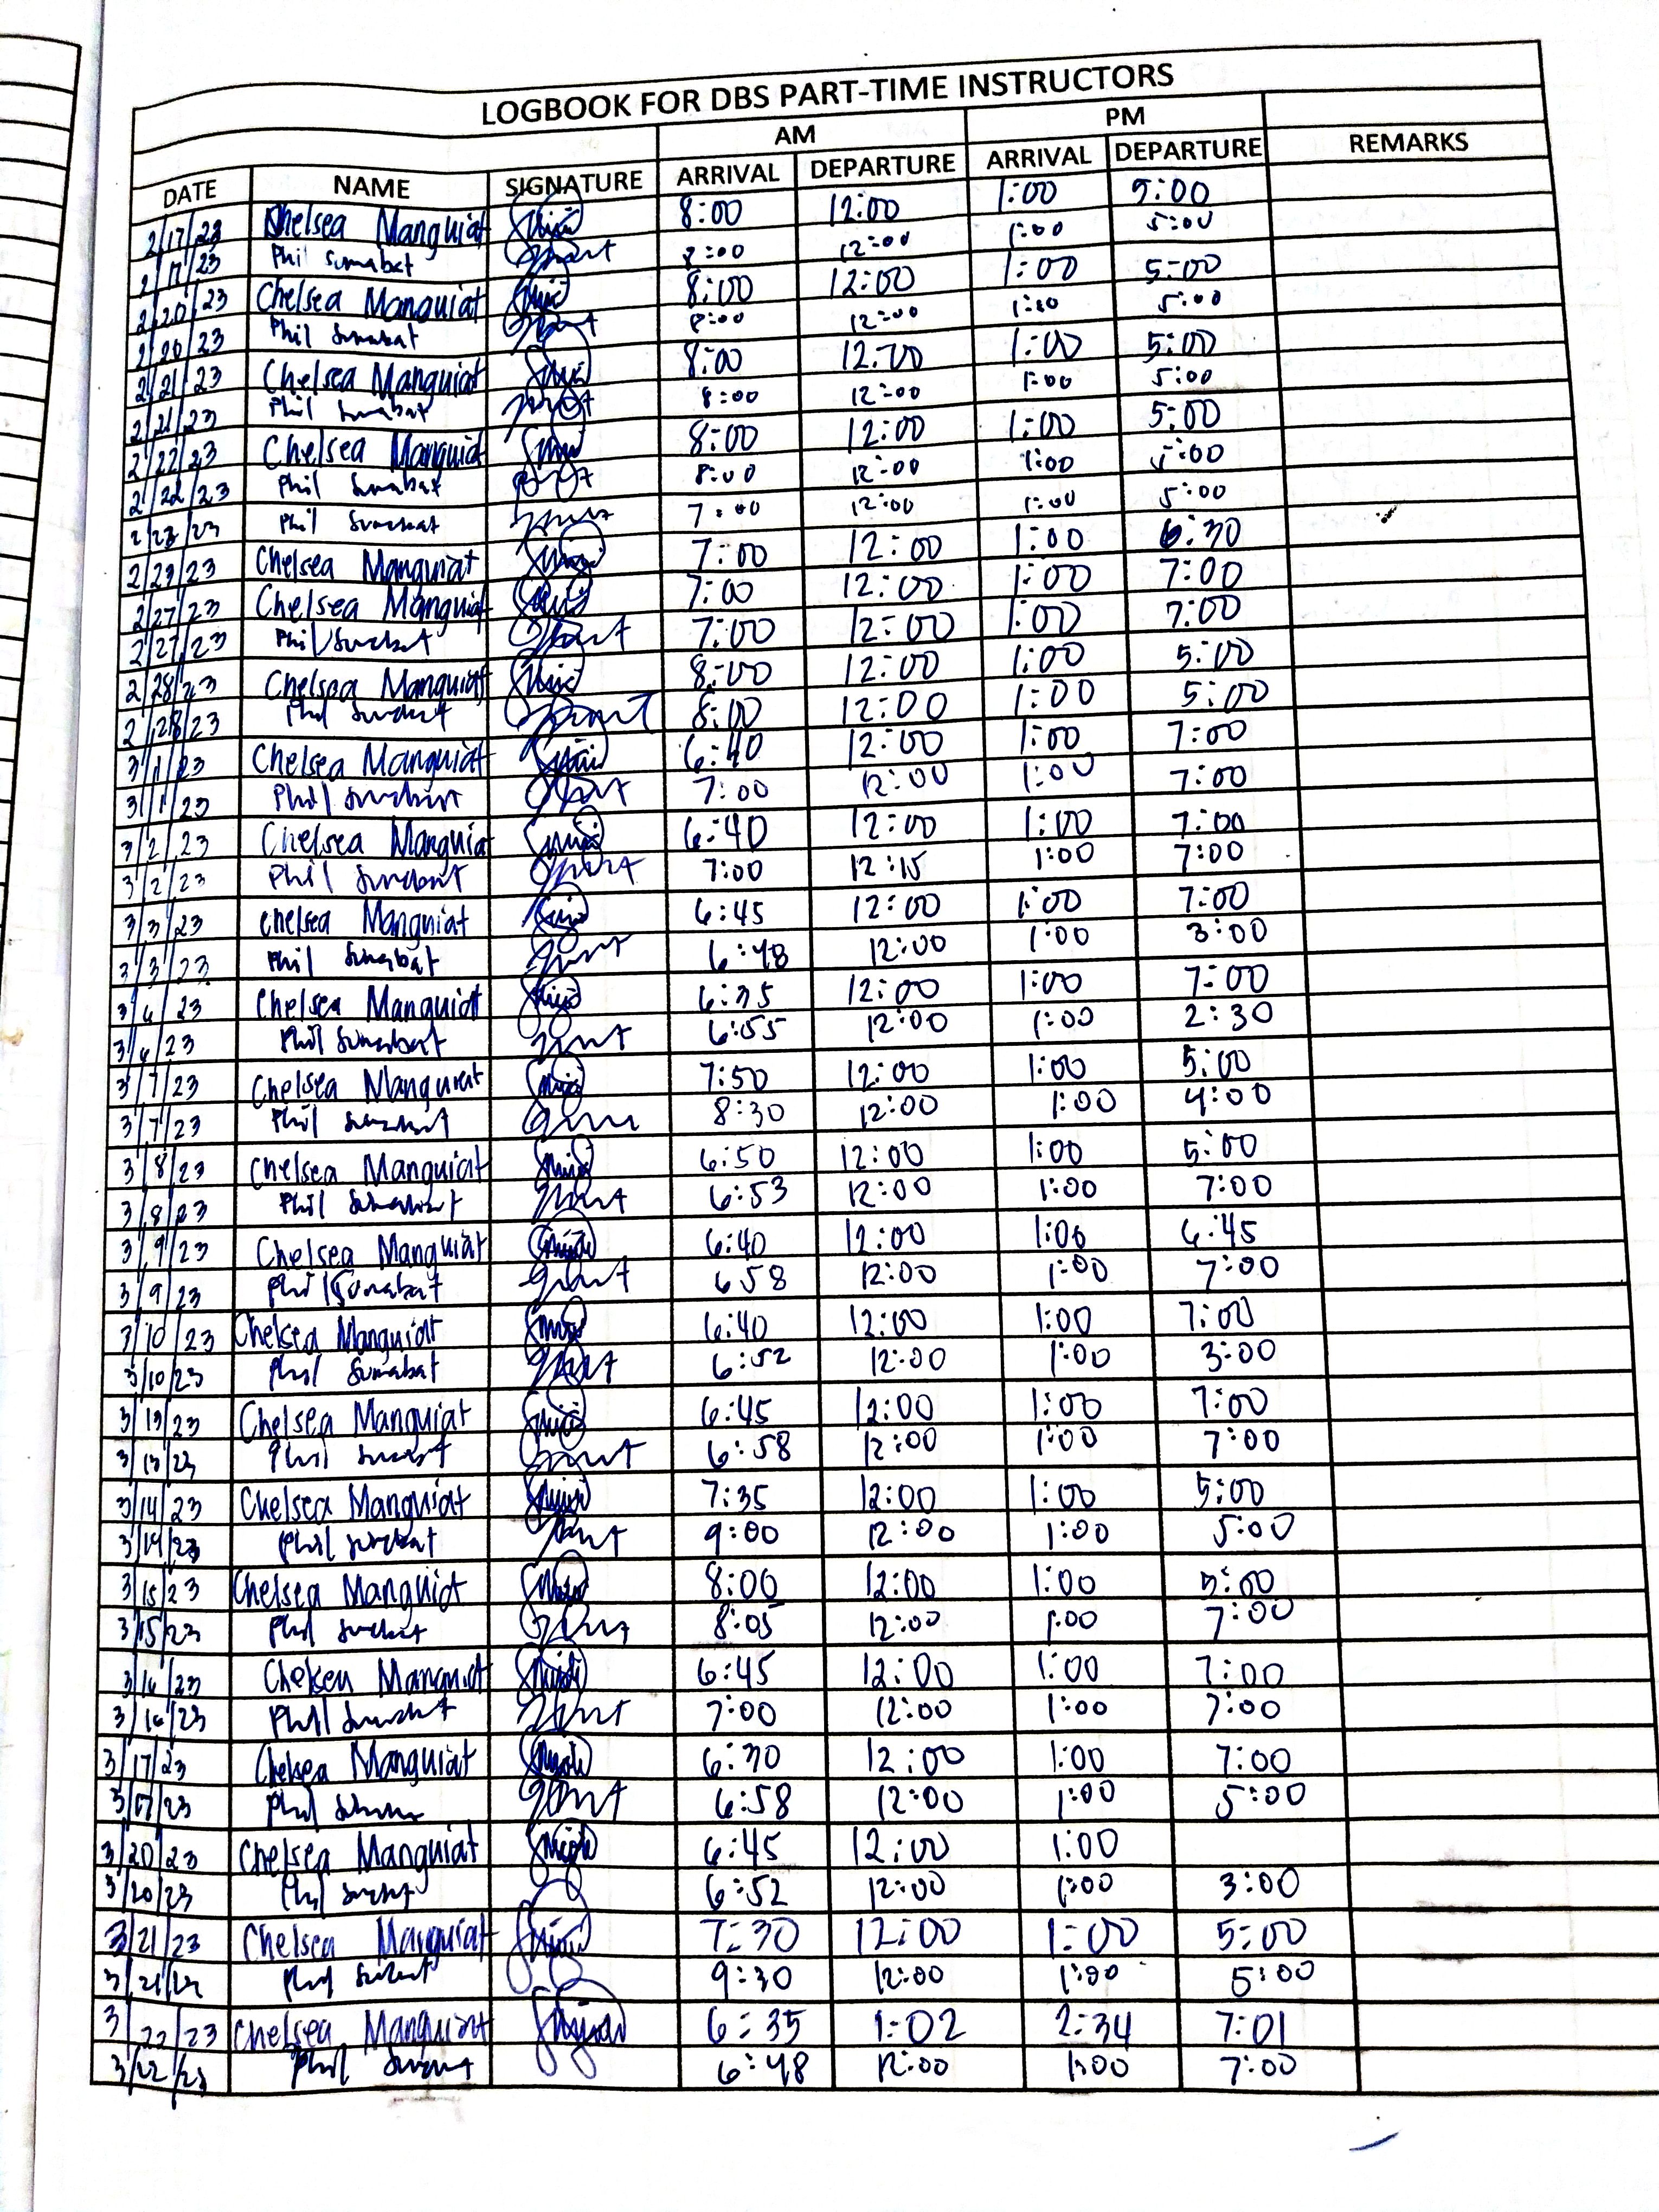 LOGBOOK FOR DBS PART-TIME INSTRUCTORS
AM PM
DATE NAME SIGNATURE ARRIVAL DEPARTURE ARRIVAL DEPARTURE REMARKS
2/17/23 Chelsea Manguiat 8:00 12:00 1:00 5:00
2/17/23 Phil Sumabat 8:00 12:00 1:00 5:00
2/20/23 Chelsea Manguiat 8:00 12:00 1:00 5:00
2/20/23 Phil Sumabat 8:00 12:00 1:00 5:00
2/21/23 Chelsea Manguiat 8:00 12:00 1:00 5:00
2/21/23 Phil Sumabat 8:00 12:00 1:00 5:00
2/22/23 Chelsea Manguiat 8:00 12:00 1:00 5:00
2/22/23 Phil Sumabat 8:00 12:00 1:00 5:00
2/23/23 Phil Sumabat 7:00 12:00 1:00 5:00
2/23/23 Chelsea Manguiat 7:00 12:00 1:00 6:30
2/27/23 Chelsea Manguiat 7:00 12:00 1:00 7:00
2/27/23 Phil Sumabat 7:00 12:00 1:00 7:00
2/28/23 Chelsea Manguiat 8:00 12:00 1:00 5:00
2/28/23 Phil Sumabat 8:00 12:00 1:00 5:00
3/1/23 Chelsea Manguiat 6:40 12:00 1:00 7:00
3/1/23 Phil Sumabat 7:00 12:00 1:00 7:00
3/2/23 Chelsea Manguia 6:40 12:00 1:00 7:00
3/2/23 Phil Sumabat 7:00 12:15 1:00 7:00
3/3/23 Chelsea Manguiat 6:45 12:00 1:00 7:00
3/3/23 Phil Sumabat 6:48 12:00 1:00 3:00
3/6/23 Chelsea Manguiat 6:35 12:00 1:00 7:00
3/6/23 Phil Sumabat 6:55 12:00 1:00 2:30
3/7/23 Chelsea Manguiat 7:50 12:00 1:00 5:00
3/7/23 Phil Sumabat 8:30 12:00 1:00 4:00
3/8/23 Chelsea Manguiat 6:50 12:00 1:00 5:00
3/8/23 Phil Sumabat 6:53 12:00 1:00 7:00
3/9/23 Chelsea Manguiat 6:40 12:00 1:00 6:45
3/9/23 Phil Sumabat 658 12:00 1:00 7:00
3/10/23 Chelsea Manguiat 6:40 12:00 1:00 7:00
3/10/23 Phil Sumabat 6:52 12:00 1:00 3:00
3/13/23 Chelsea Manguiat 6:45 12:00 1:00 7:00
3/13/23 Phil Sumabat 6:58 12:00 1:00 7:00
3/14/23 Chelsea Manguiat 7:35 12:00 1:00 5:00
3/14/23 Phil Sumabat 9:00 12:00 1:00 5:00
3/15/23 Chelsea Manguiat 8:00 12:00 1:00 5:00
3/15/23 Phil Sumabat 8:05 12:00 1:00 7:00
3/16/23 Chelsea Manguiat 6:45 12:00 1:00 7:00
3/16/23 Phil Sumabat 7:00 12:00 1:00 7:00
3/17/23 Chelsea Manguiat 6:30 12:00 1:00 7:00
3/17/23 Phil 6:58 12:00 1:00 5:00
3/20/23 Chelsea Manguiat 6:45 12:00 1:00
3/20/23 Phil 6:52 12:00 1:00 3:00
3/21/23 Chelsea Manguiat 7:30 12:00 1:00 5:00
3/21/23 Phil 9:30 12:00 1:00 5:00
3/22/23 Chelsea Manguiat 6:35 1:02 2:34 7:01
3/22/23 Phil 6:48 12:00 1:00 7:00